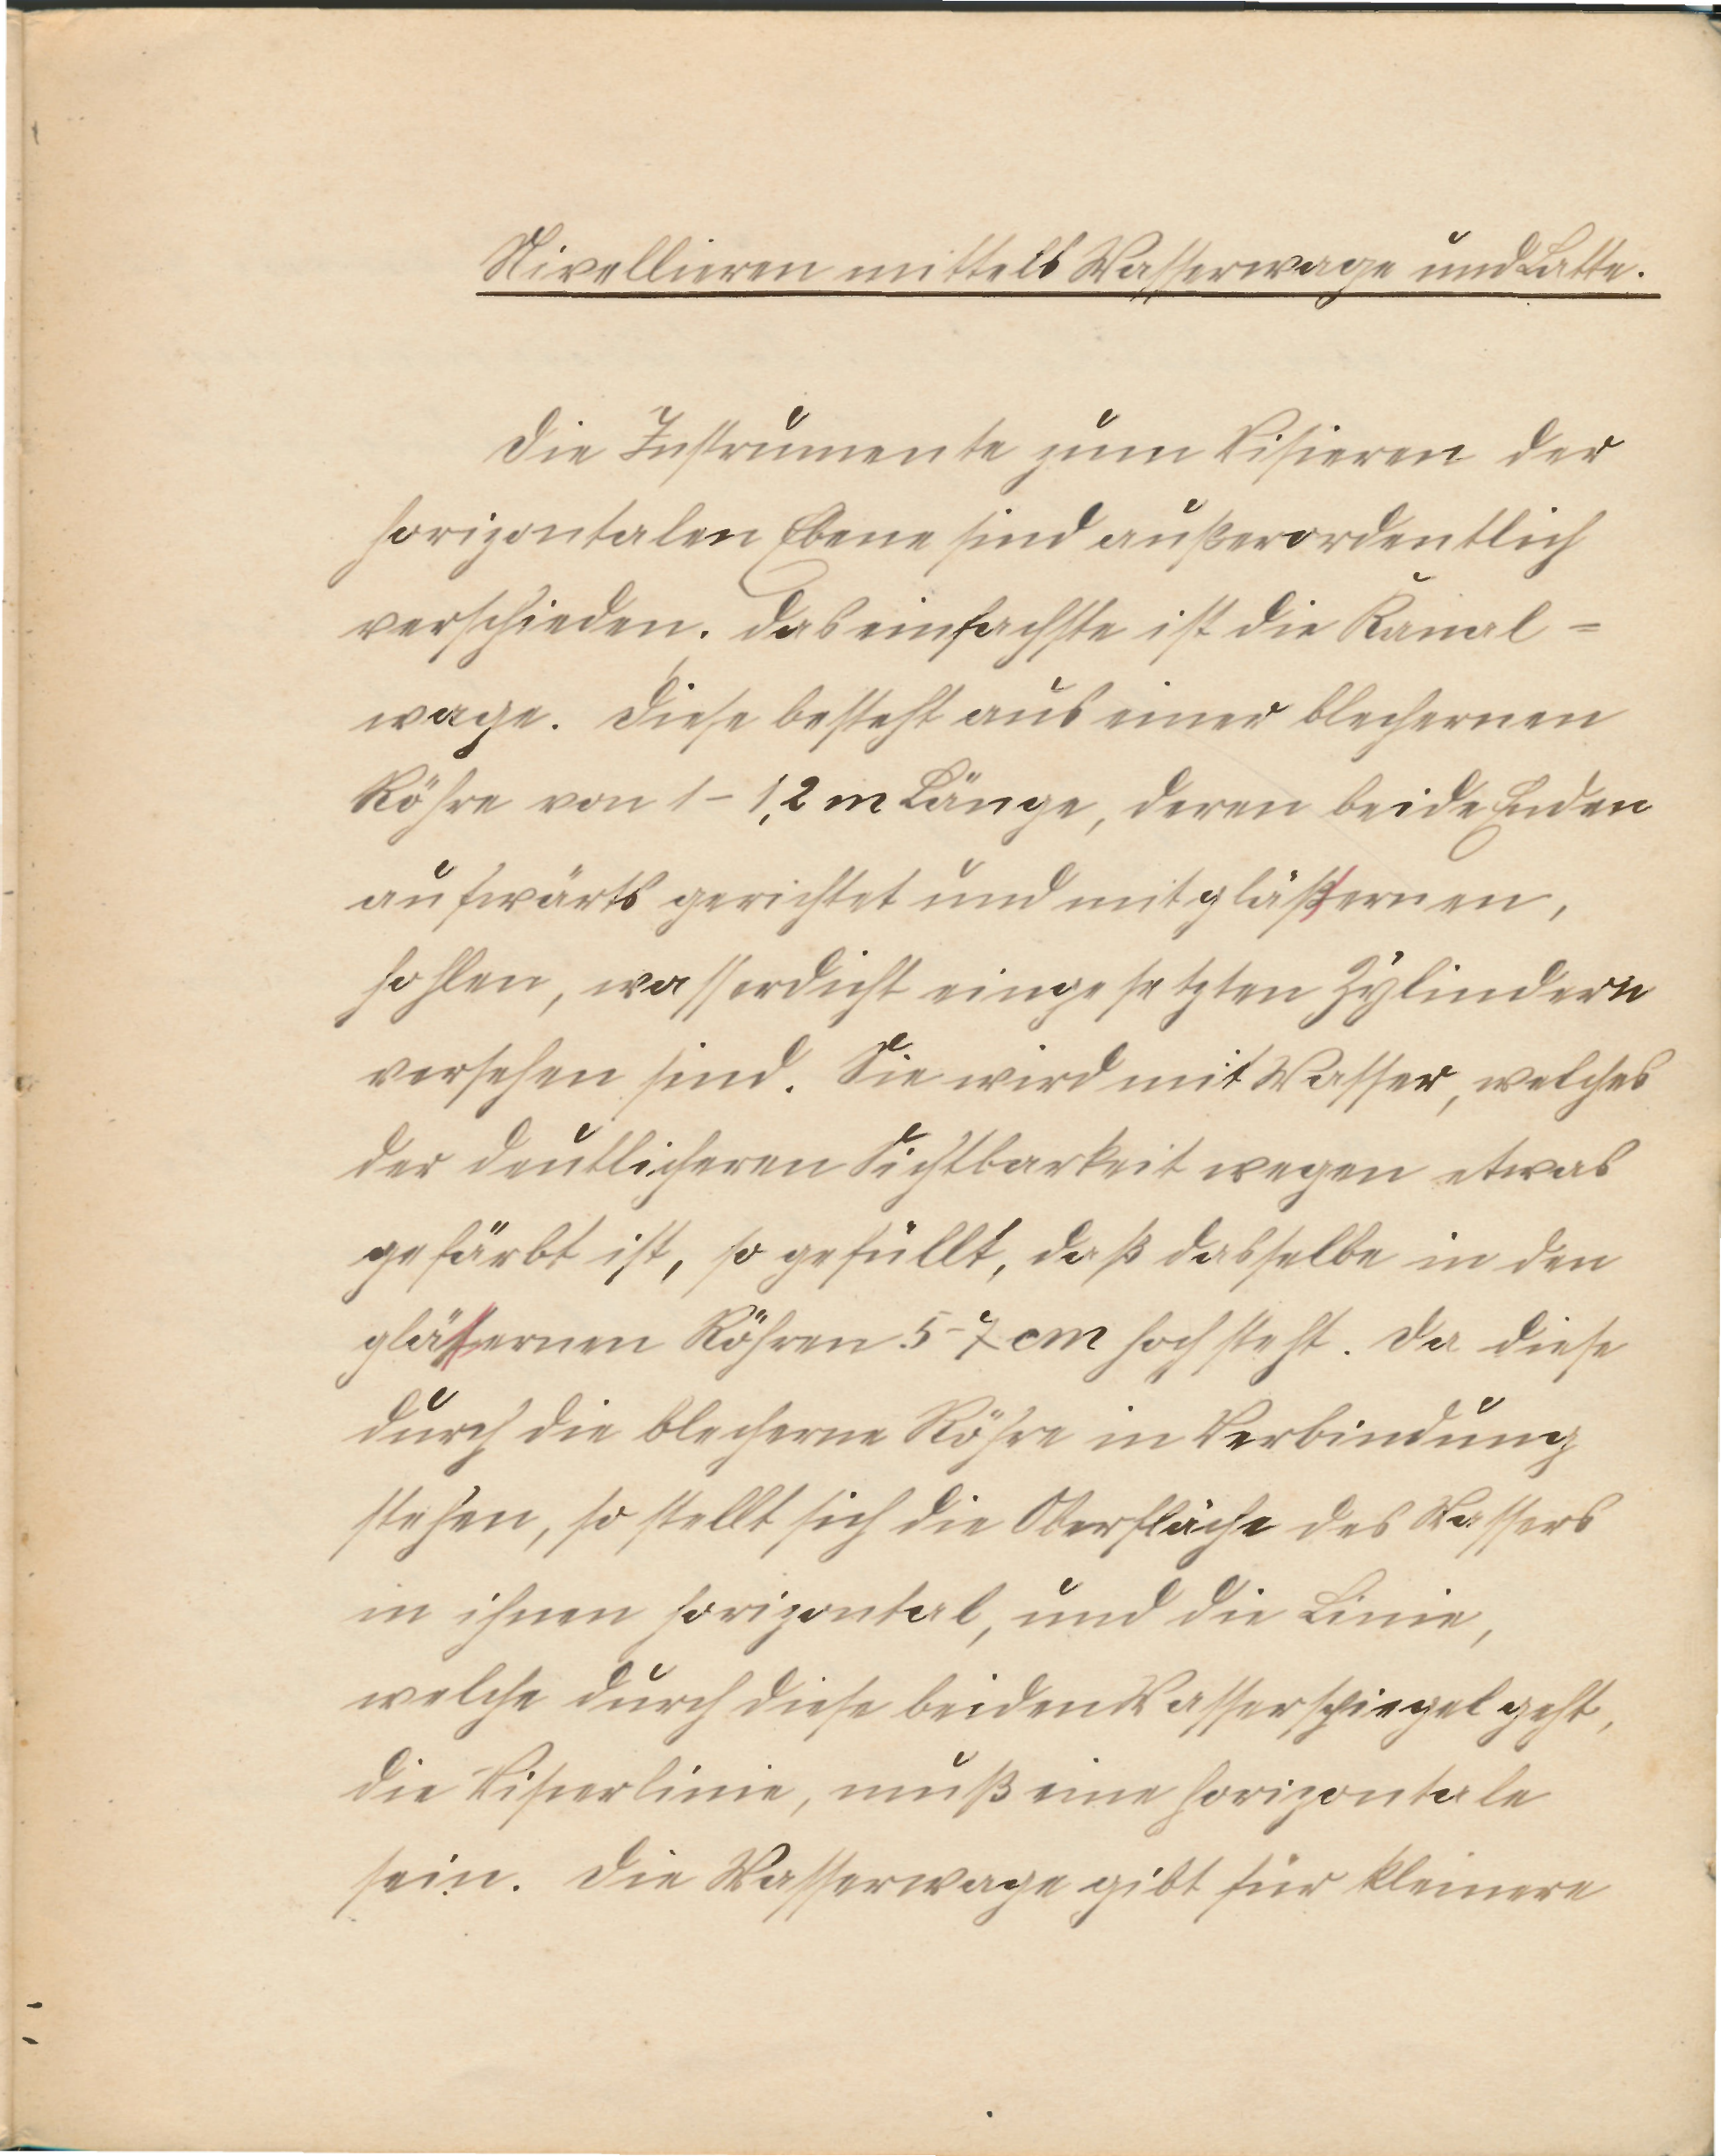 Nivellieren mittels Wasserwage und Latte.
Die Instrumente zum Visieren der
horizontalen Ebene sind außerordentlich
verschieden. Das einfachste ist die Kanal=
wage. Diese besteht aus einer blechernen
Röhre von 1-1,2 m Länge, deren beide Enden
aufwärts gerichtet und mit gläßernen,
hohlen, wasserdicht eingesetzten Zylindern
versehen sind. Sie wird mit Wasser, welches
der deutlicheren Sichtbarkeit wegen etwas
gefärbt ist, so gefüllt, daß dasselbe in den
glässernen Röhren 5-7 cm hoch steht. Da diese
durch die blecherne Röhre in Verbindung
stehen, so stellt sich die Oberfläche des Wassers
in ihnen horizontal, und die Linie,
welche durch diese beiden Wasserspiegel geht,
die Visierlinie, muß eine horizontale
sein. Die Wasserwage gibt für kleinere